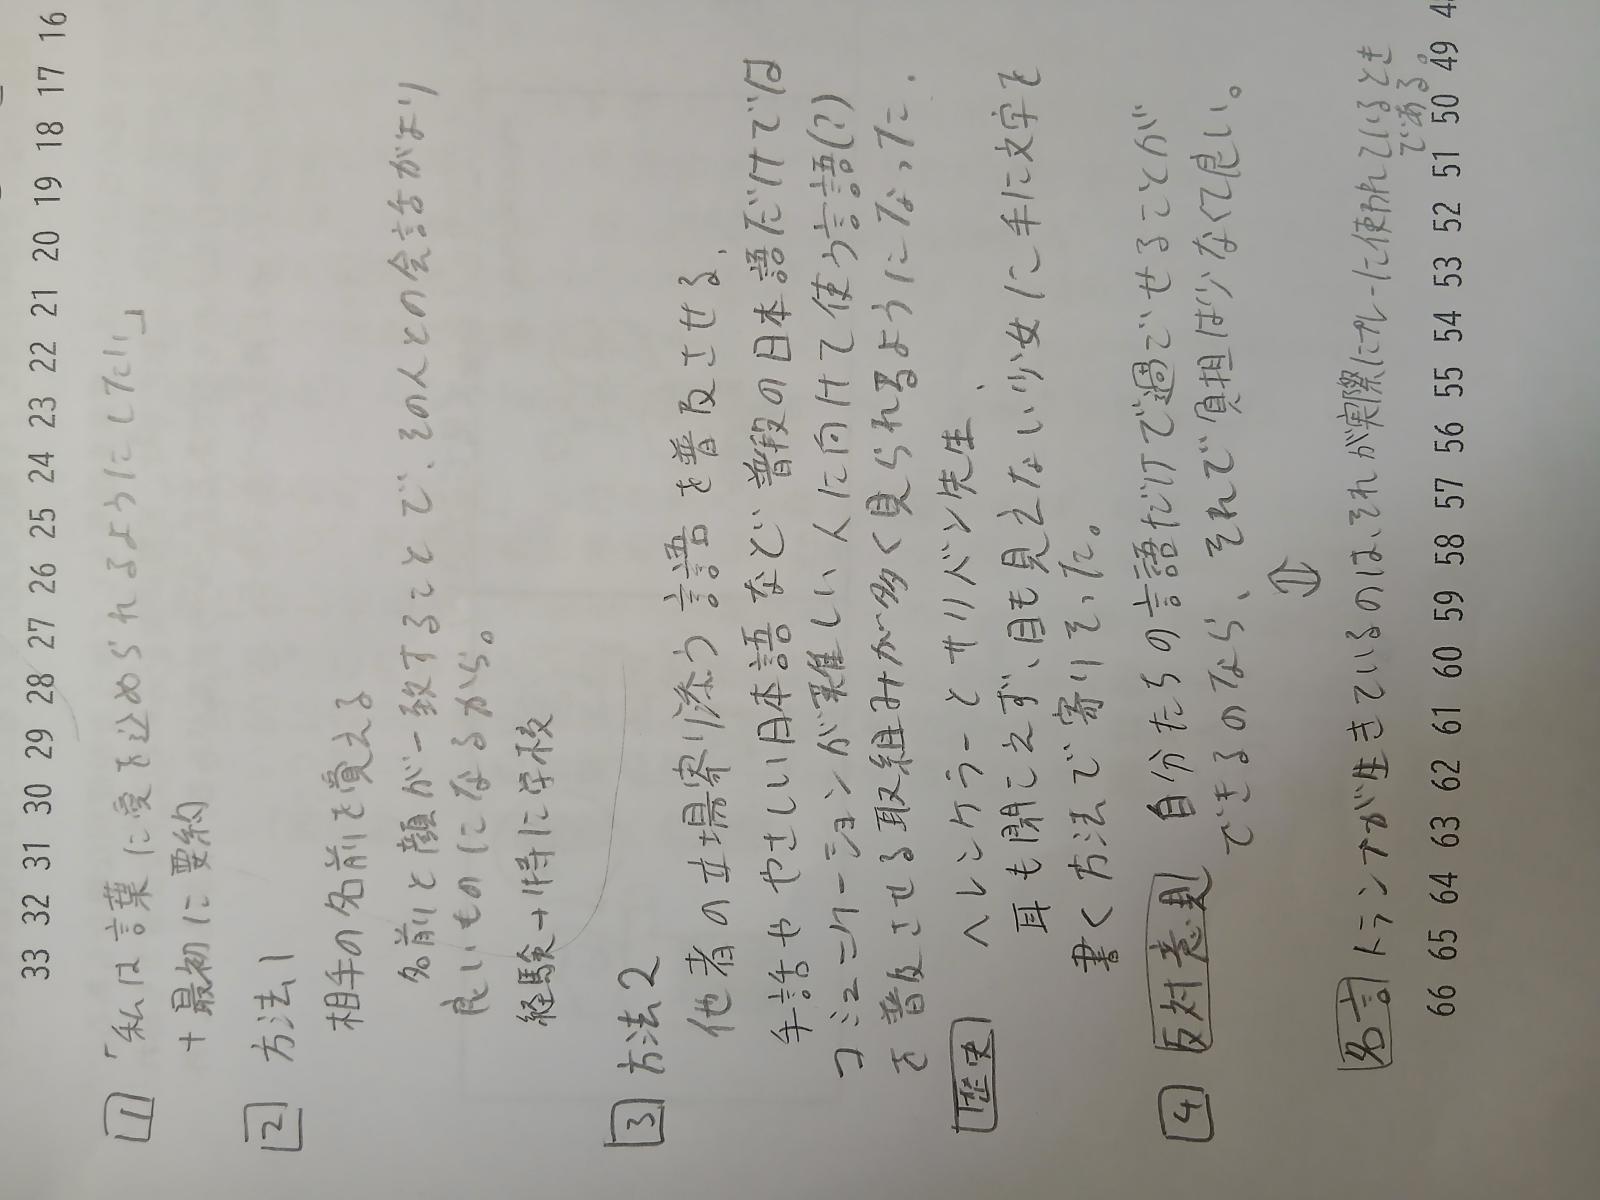 33 32 31 30 29 28 27 26 25 24 23 22 21 20 19 18 17 16
1 「私は言葉に愛を込められるようにしたい」
+最初に要約
2 方法1
相手の名前を覚える
名前と顔が一致することで、その人との会話がより
良いものになるから。
経験→特に学校
3 方法2
他者の立場寄り添う言語を普及させる、
手話ややさしい日本語など普段の日本語だけでは
コミュニケーションが難しい人に向けて使う言語(?)
を普及させる取組みが多く見られるようになった.
歴史 ヘレンケラーとサリバン先生、
耳も聞こえず、目も見えない少女に手に文字を
書く方法で寄りそった。
4 反対意見 自分たちの言語だけで過ごせることが
できるのなら、それで負担は少なくて良い。
⇕
名言 トランプが生きているのは、それが実際にプレーに使われているとき
である。
66 65 64 63 62 61 60 59 58 57 56 55 54 53 52 51 50 49